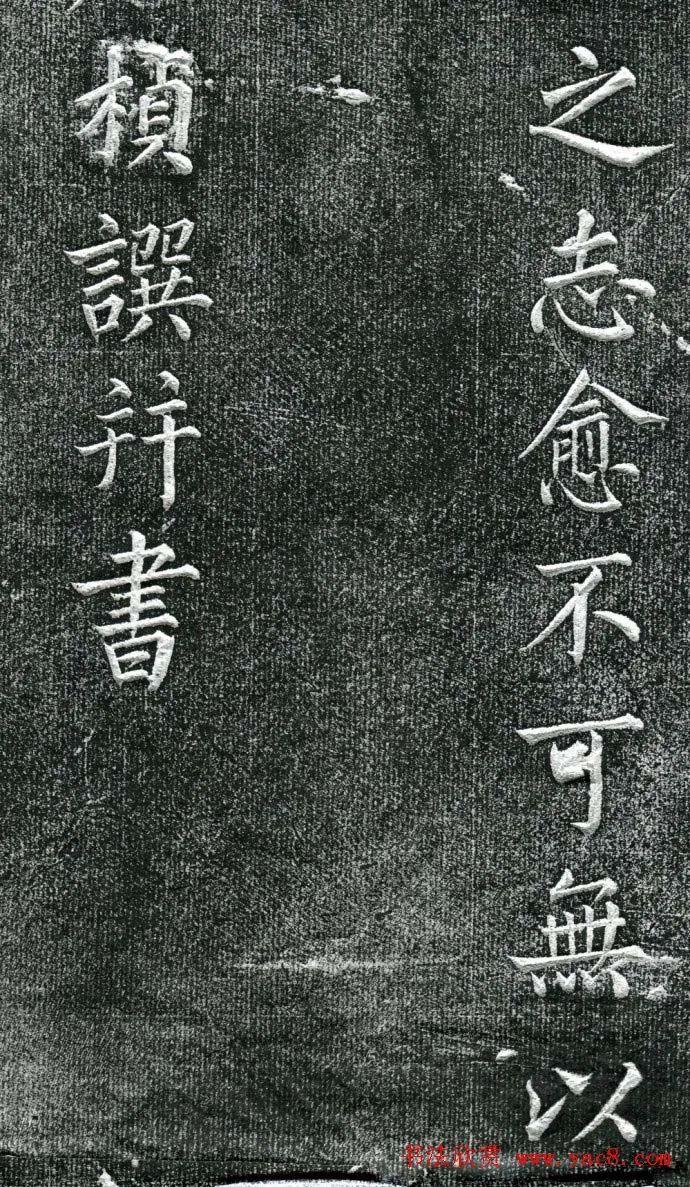 之志愈不可無以
楨譔并書
书法欣赏 www.yac8.com